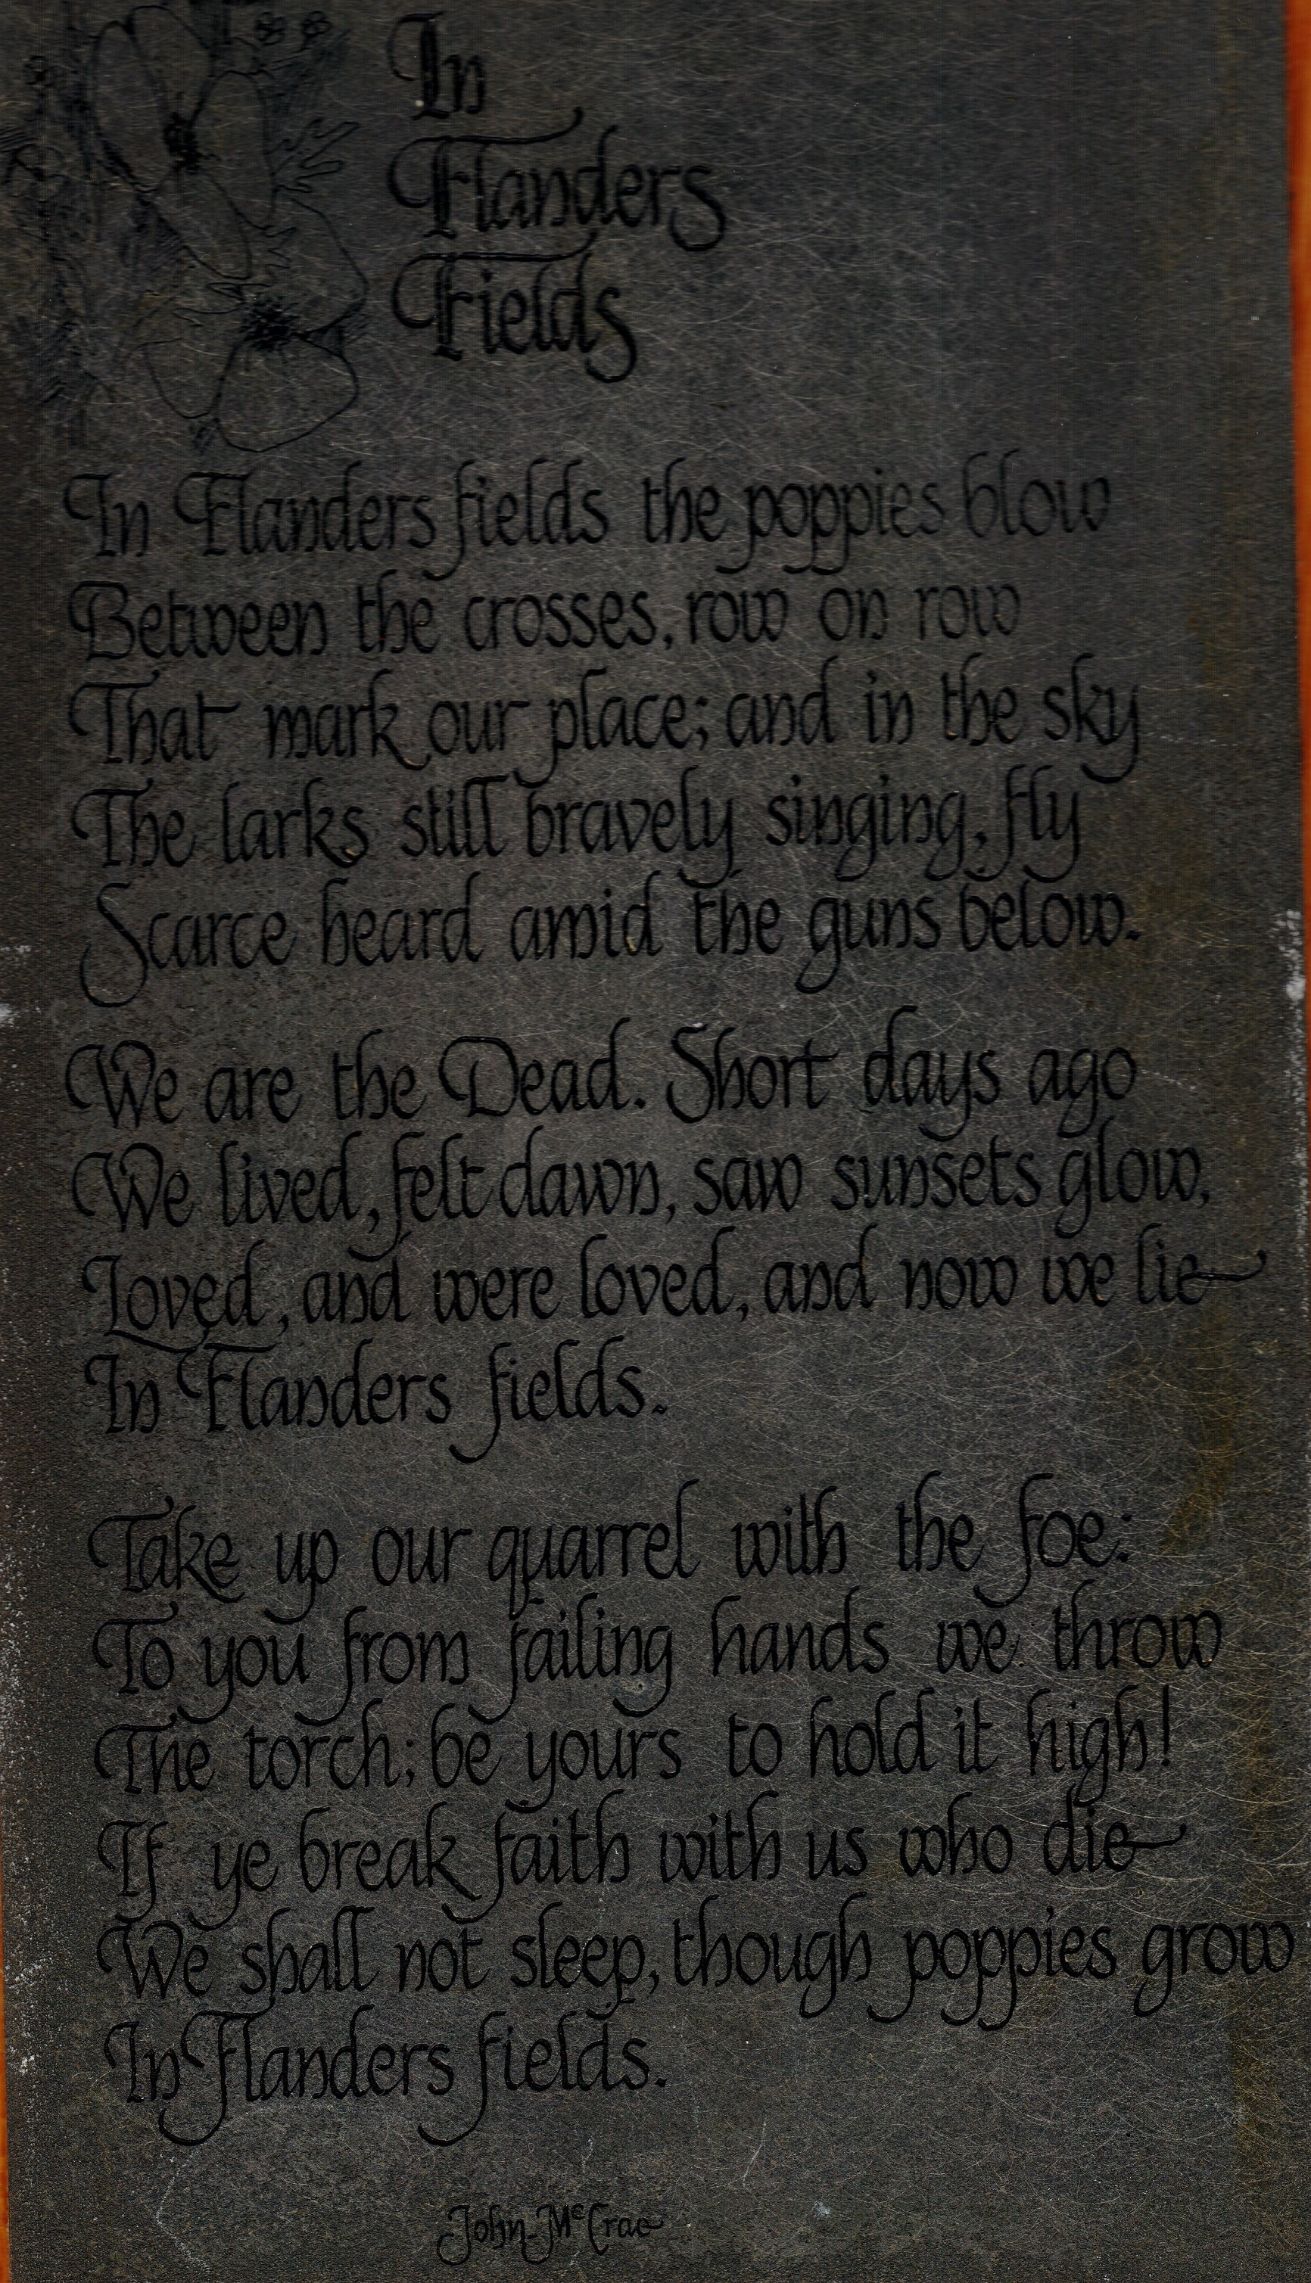 In
Flanders
Fields
In Flanders fields the poppies blow
Between the crosses, row on row
That mark our place; and in the sky
The larks still bravely singing, fly
Scarce heard amid the guns below.
We are the Dead. Short days ago
We lived, felt dawn, saw sunsets glow,
Loved, and were loved, and now we lie
In Flanders fields.
Take up our quarrel with the foe:
To you from failing hands we throw
The torch; be yours to hold it high!
If ye break faith with us who die
We shall not sleep, though poppies grow
In Flanders fields.
John McCrae